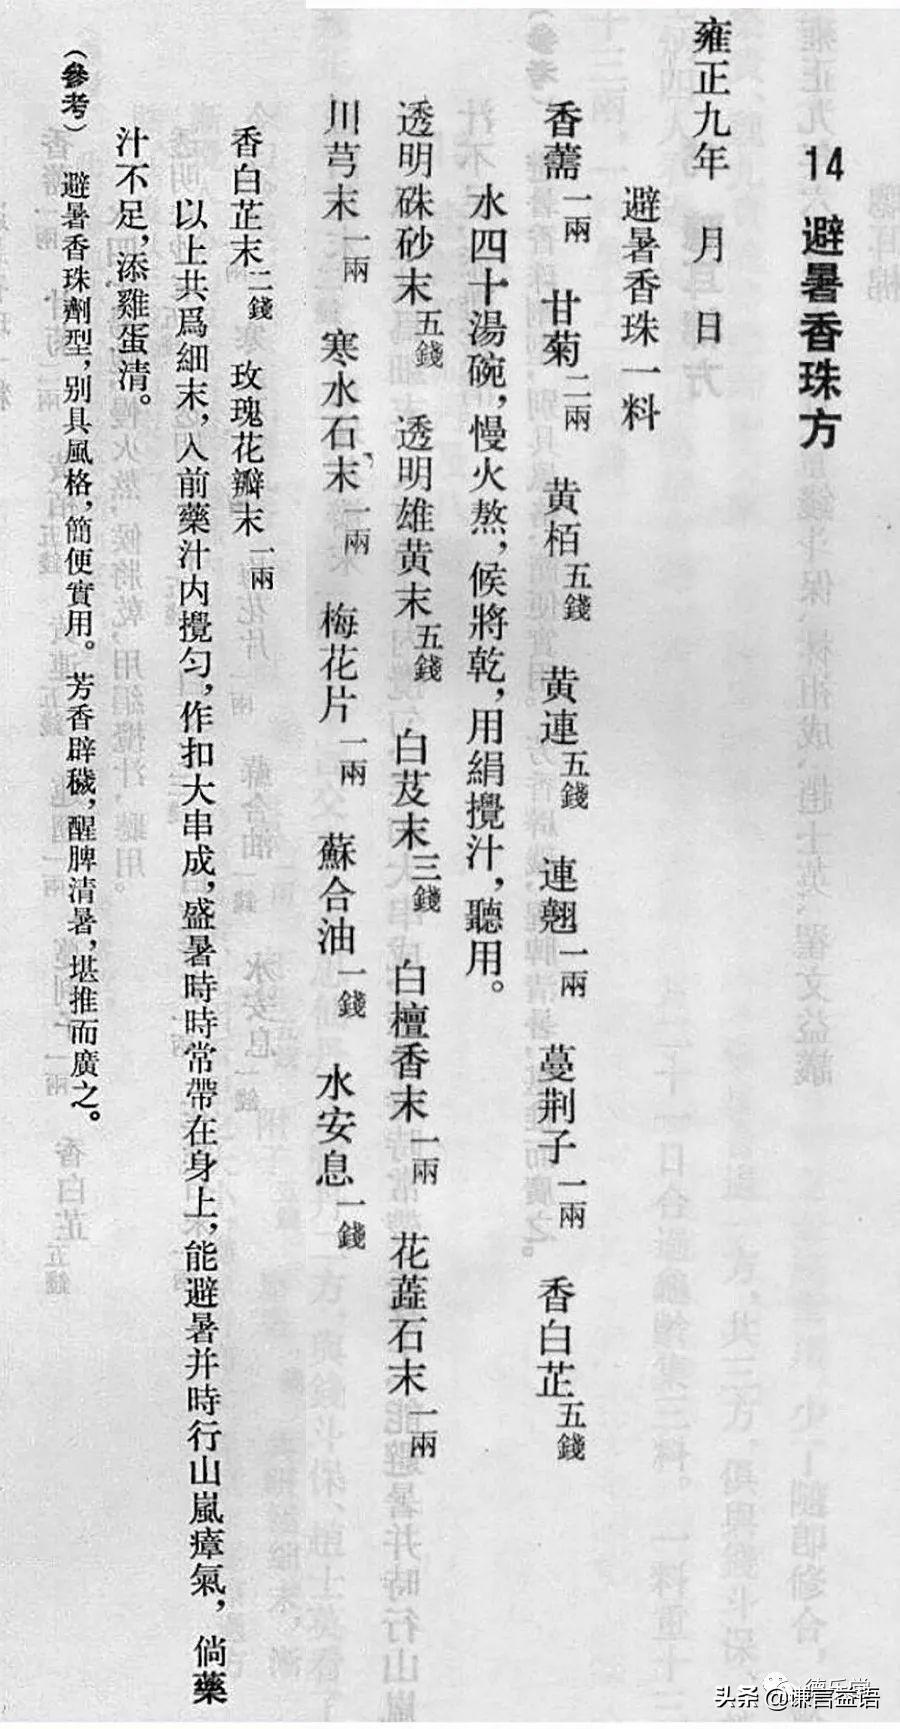 14 避暑香珠方
雍正九年 月 日
避暑香珠一料
香薷一兩 甘菊二兩 黄栢五錢 黄連五錢 連翹一兩 蔓荆子一兩 香白芷五錢
水四十湯碗，慢火熬，候將乾，用絹攪汁，聽用。
透明硃砂末五錢 透明雄黄末五錢 白芨末三錢 白檀香末一兩 花蕋石末一兩
川芎末一兩 寒水石末一兩 梅花片一兩 蘇合油一錢 水安息一錢
香白芷末二錢 玫瑰花瓣末一兩
以上共爲細末，入前藥汁内攪匀，作扣大串成，盛暑時時常帶在身上，能避暑并時行山嵐瘴氣，倘藥
汁不足，添雞蛋清。
（參考） 避暑香珠劑型，别具風格，簡便實用。芳香辟穢，醒脾清暑，堪推而廣之。
德乐堂
头条 @谦言益语